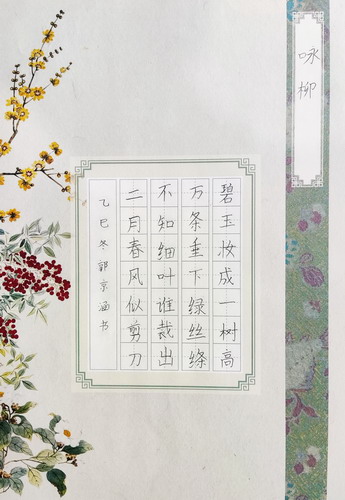 咏柳
碧玉妆成一树高
万条垂下绿丝绦
不知细叶谁裁出
二月春风似剪刀
乙巳冬郭京涵书